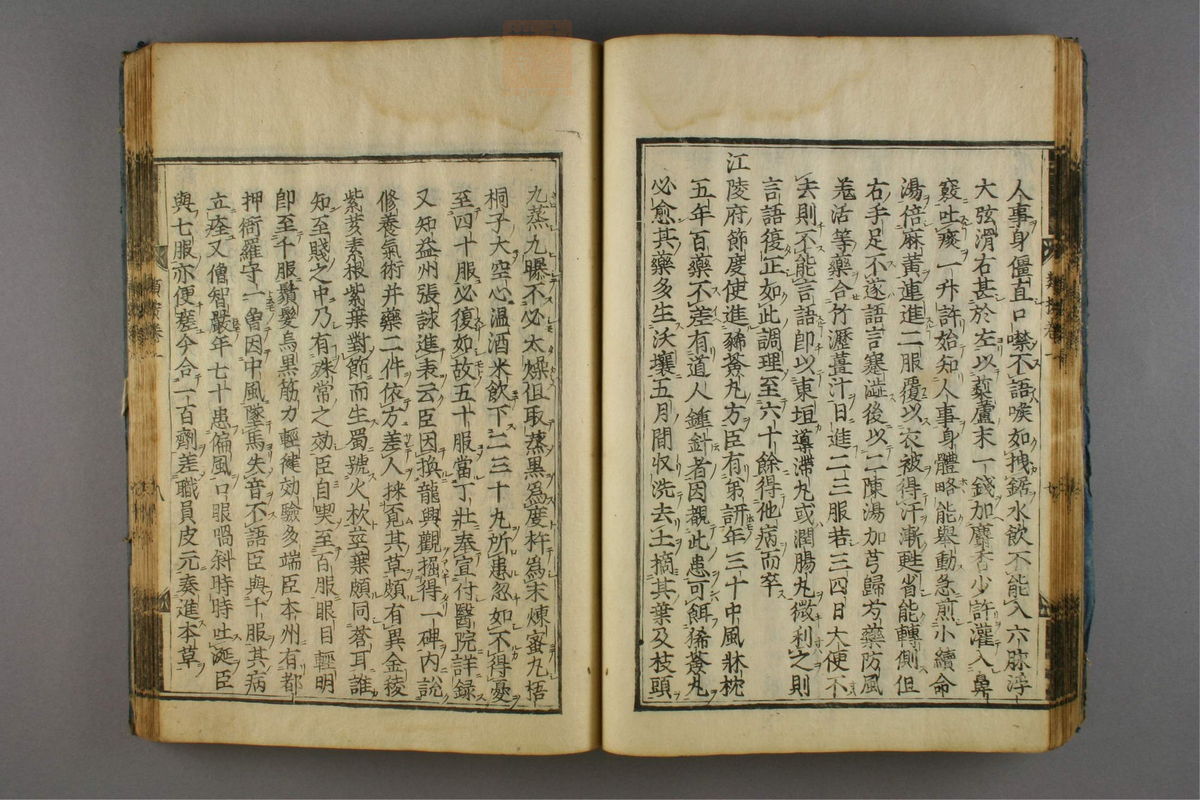 人事身僵直口噤不語喉如拽鋸水飲不能入六脉浮
大弦滑右甚於左以藜蘆末一錢加麝香少許灌入鼻
竅吐痰一升許始知人事身體略能舉動急煎小續命
湯倍麻黃連進二服覆以衣被得汗漸甦省能轉側但
右手足不遂語言蹇澁後以二陳湯加芎歸芍藥防風
羌活等藥合竹瀝薑汁日進二三服若三四日大便不
去則不能言語卽以東垣導滯丸或潤腸丸微利之則
言語復正如此調理至六十餘得他病而卒
江陵府節度使進豨薟丸方臣有弟訮年三十中風牀枕
五年百藥不差有道人鍾針者因覩此患可餌豨薟丸
必愈其藥多生沃壤五月間収洗去土摘其葉及枝頭
九蒸九曝不必太燥但取蒸黑爲度杵爲末煉蜜丸梧
桐子大空心溫酒米飲下二三十丸所患忽加不得憂
至四十服必復如故五十服當丁壯奉宣付醫院詳錄
又知益州張詠進表云臣因換龍興觀掘得一碑內說
修養氣術并藥二件依方差人採覓其草頗有異金稜
紫荄素根紫葉對節而生蜀號火杴莖葉頗同蒼耳誰
知至賤之中乃有殊常之効臣自喫至百服眼目輕明
卽至千服鬚髮烏黑筋力輕健効驗多端臣本州有都
押衙羅守一曾因中風墜馬失音不語臣與十服其病
立痊又僧智嚴年七十患偏風口眼喎斜時時吐涎臣
與七服亦便痊今合一百劑差職員皮元奏進本草